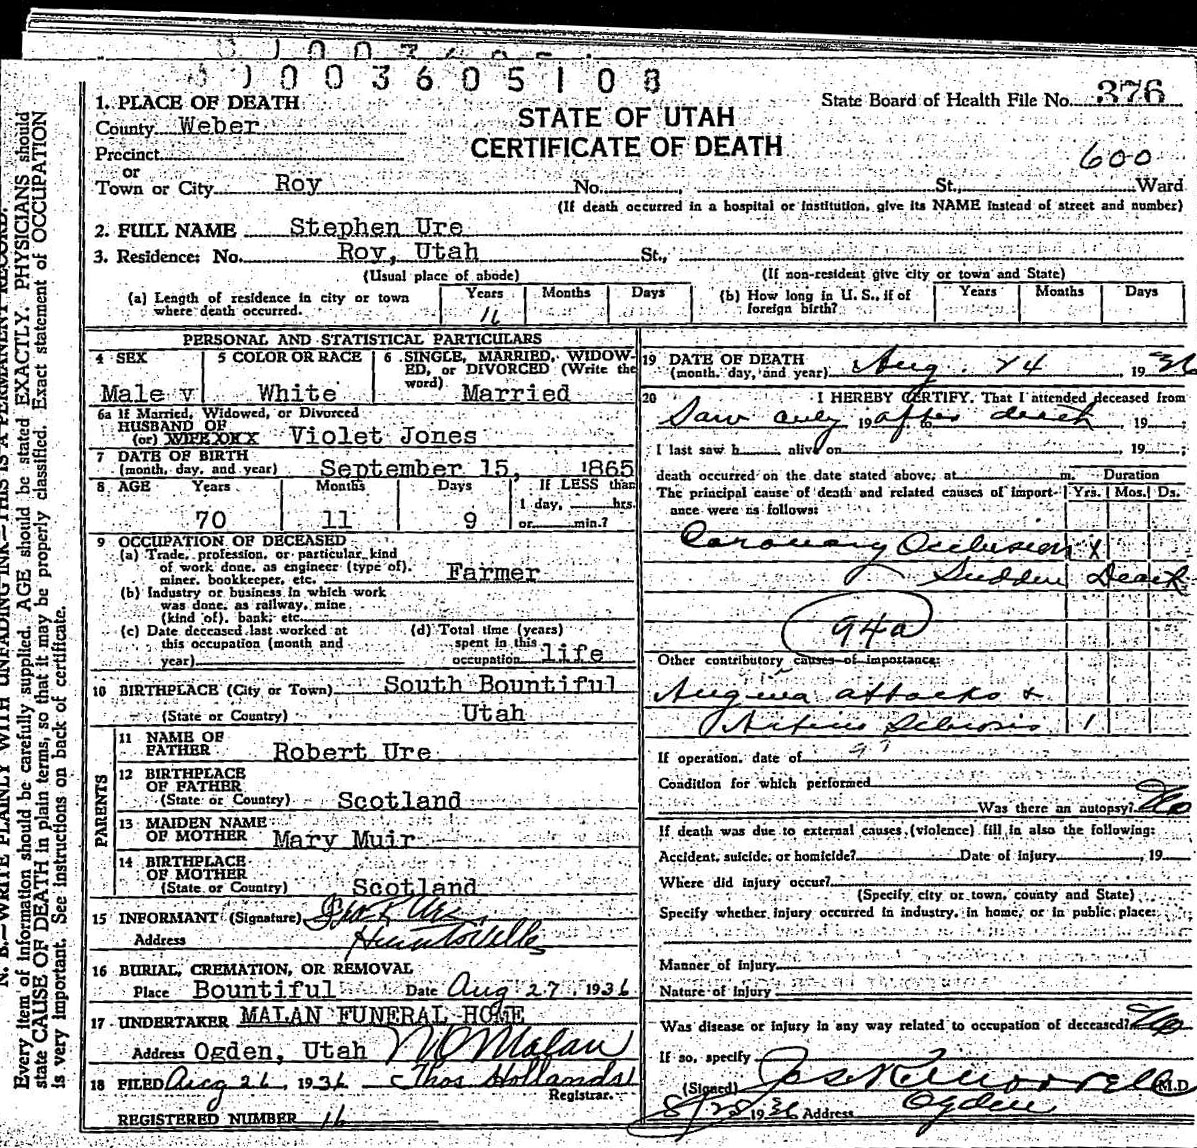 0 0 0 3 6 0 5 1 0 8
State Board of Health File No. 376
STATE OF UTAH
CERTIFICATE OF DEATH
1. PLACE OF DEATH
County Weber
Precinct
or
Town or City Roy No. , St., Ward
600
(If death occurred in a hospital or institution, give its NAME instead of street and number)
2. FULL NAME Stephen Ure
3. Residence: No. Roy, Utah St.,
(Usual place of abode) (If non-resident give city or town and State)
(a) Length of residence in city or town where death occurred. Years Months Days
(b) How long in U. S., if of foreign birth? Years Months Days
PERSONAL AND STATISTICAL PARTICULARS
4 SEX Male v
5 COLOR OR RACE White
6 SINGLE, MARRIED, WIDOWED, or DIVORCED (Write the word) Married
6a If Married, Widowed, or Divorced
HUSBAND OF
(or) WIFE OF Violet Jones
7 DATE OF BIRTH
(month, day, and year) September 15, 1865
8 AGE Years Months Days If LESS than
1 day, hrs.
70 11 9 or min.?
9 OCCUPATION OF DECEASED
(a) Trade, profession, or particular kind
of work done, as engineer (type of),
miner, bookkeeper, etc. Farmer
(b) Industry or business in which work
was done, as railway, mine
(kind of), bank, etc.
(c) Date deceased last worked at
this occupation (month and
year)
(d) Total time (years)
spent in this
occupation life
10 BIRTHPLACE (City or Town) South Bountiful
(State or Country) Utah
PARENTS
11 NAME OF
FATHER Robert Ure
12 BIRTHPLACE
OF FATHER
(State or Country) Scotland
13 MAIDEN NAME
OF MOTHER Mary Muir
14 BIRTHPLACE
OF MOTHER
(State or Country) Scotland
15 INFORMANT (Signature)
Address Huntsville
16 BURIAL, CREMATION, OR REMOVAL
Place Bountiful Date Aug 27, 1936
17 UNDERTAKER MALAN FUNERAL HOME
Address Ogden, Utah Malan
18 FILED Aug 26, 1936 Thos Hollands
Registrar.
REGISTERED NUMBER 16
19 DATE OF DEATH
(month, day, and year) Aug. 24, 1936
20 I HEREBY CERTIFY, That I attended deceased from
Saw only 19 after death, 19 ;
I last saw h alive on , 19 ;
death occurred on the date stated above, at m. Duration
The principal cause of death and related causes of import- Yrs. Mos. Ds.
ance were as follows:
Coronary Occlusion x
Sudden Death
94a
Other contributory causes of importance:
Angina attacks +
Arterio Sclerosis 1
If operation, date of
Condition for which performed
Was there an autopsy? No
If death was due to external causes (violence) fill in also the following:
Accident, suicide, or homicide? Date of injury , 19
Where did injury occur?
(Specify city or town, county and State)
Specify whether injury occurred in industry, in home, or in public place:
Manner of injury
Nature of injury
Was disease or injury in any way related to occupation of deceased? No
If so, specify
(Signed) M.D
1936 Address Ogden
N. B.—WRITE PLAINLY WITH UNFADING INK—THIS IS A PERMANENT RECORD.
Every item of information should be carefully supplied. AGE should be stated EXACTLY. PHYSICIANS should
state CAUSE OF DEATH in plain terms, so that it may be properly classified. Exact statement of OCCUPATION
is very important. See instructions on back of certificate.